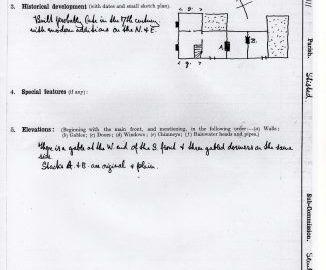 3. Historical development (with dates and small sketch plan).
Built probably late in the 17th century
with modern additions on the N. & E.
9.
A
B
9.
4. Special features (if any):
5. Elevations: (Beginning with the main front, and mentioning, in the following order—(a) Walls;
(b) Gables; (c) Doors; (d) Windows; (e) Chimneys; (f) Rainwater heads and pipes.)
There is a gable at the W. end of the S. front & three gabled dormers on the same
side.
Stacks A. & B. are original & plain.
Parish.
Stisted
Sub-Commission.